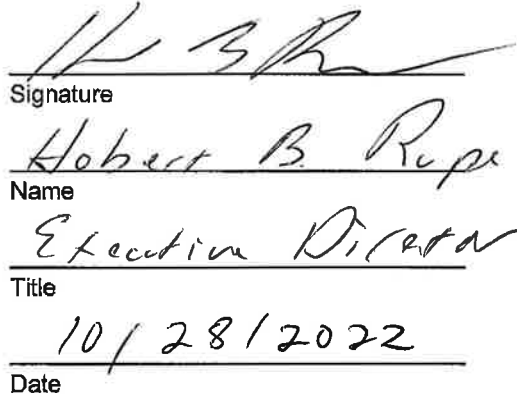 Signature
Hobert B. Rupe
Name
Executive Director
Title
10/28/2022
Date